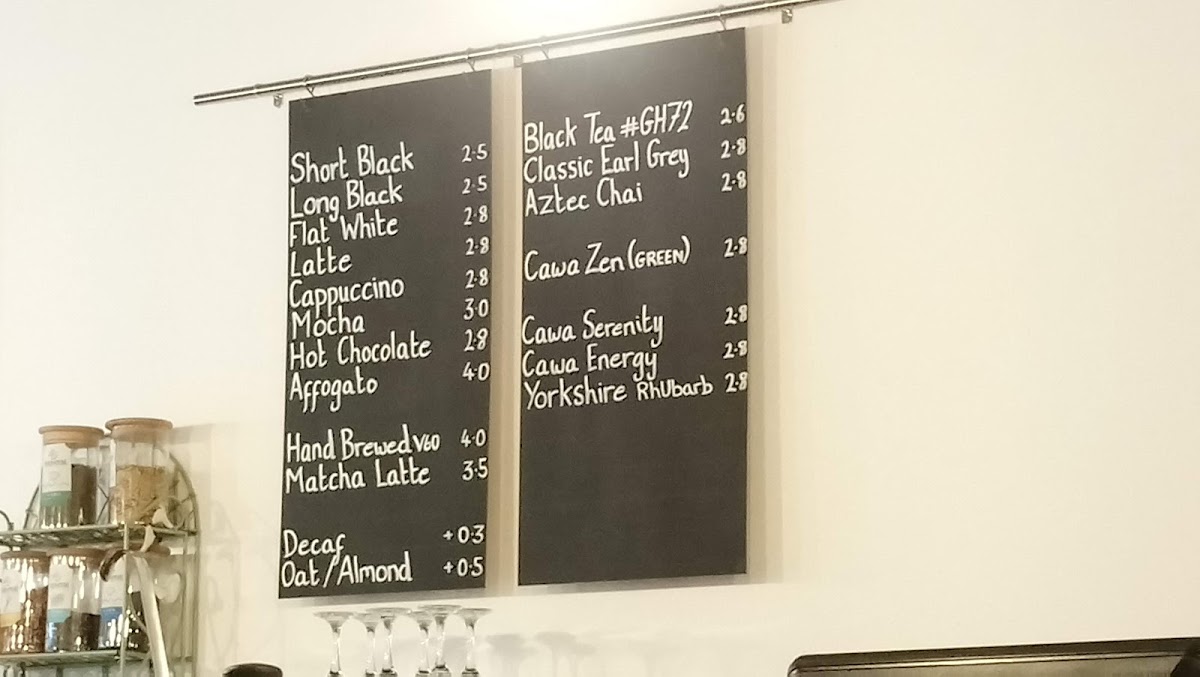 Short Black 2.5
Long Black 2.5
Flat White 2.8
Latte 2.8
Cappuccino 2.8
Mocha 3.0
Hot Chocolate 2.8
Affogato 4.0
Hand Brewed V60 4.0
Matcha Latte 3.5
Decaf +0.3
Oat/Almond +0.5
Black Tea #GH72 2.6
Classic Earl Grey 2.8
Aztec Chai 2.8
Cawa Zen (GREEN) 2.8
Cawa Serenity 2.8
Cawa Energy 2.8
Yorkshire Rhubarb 2.8